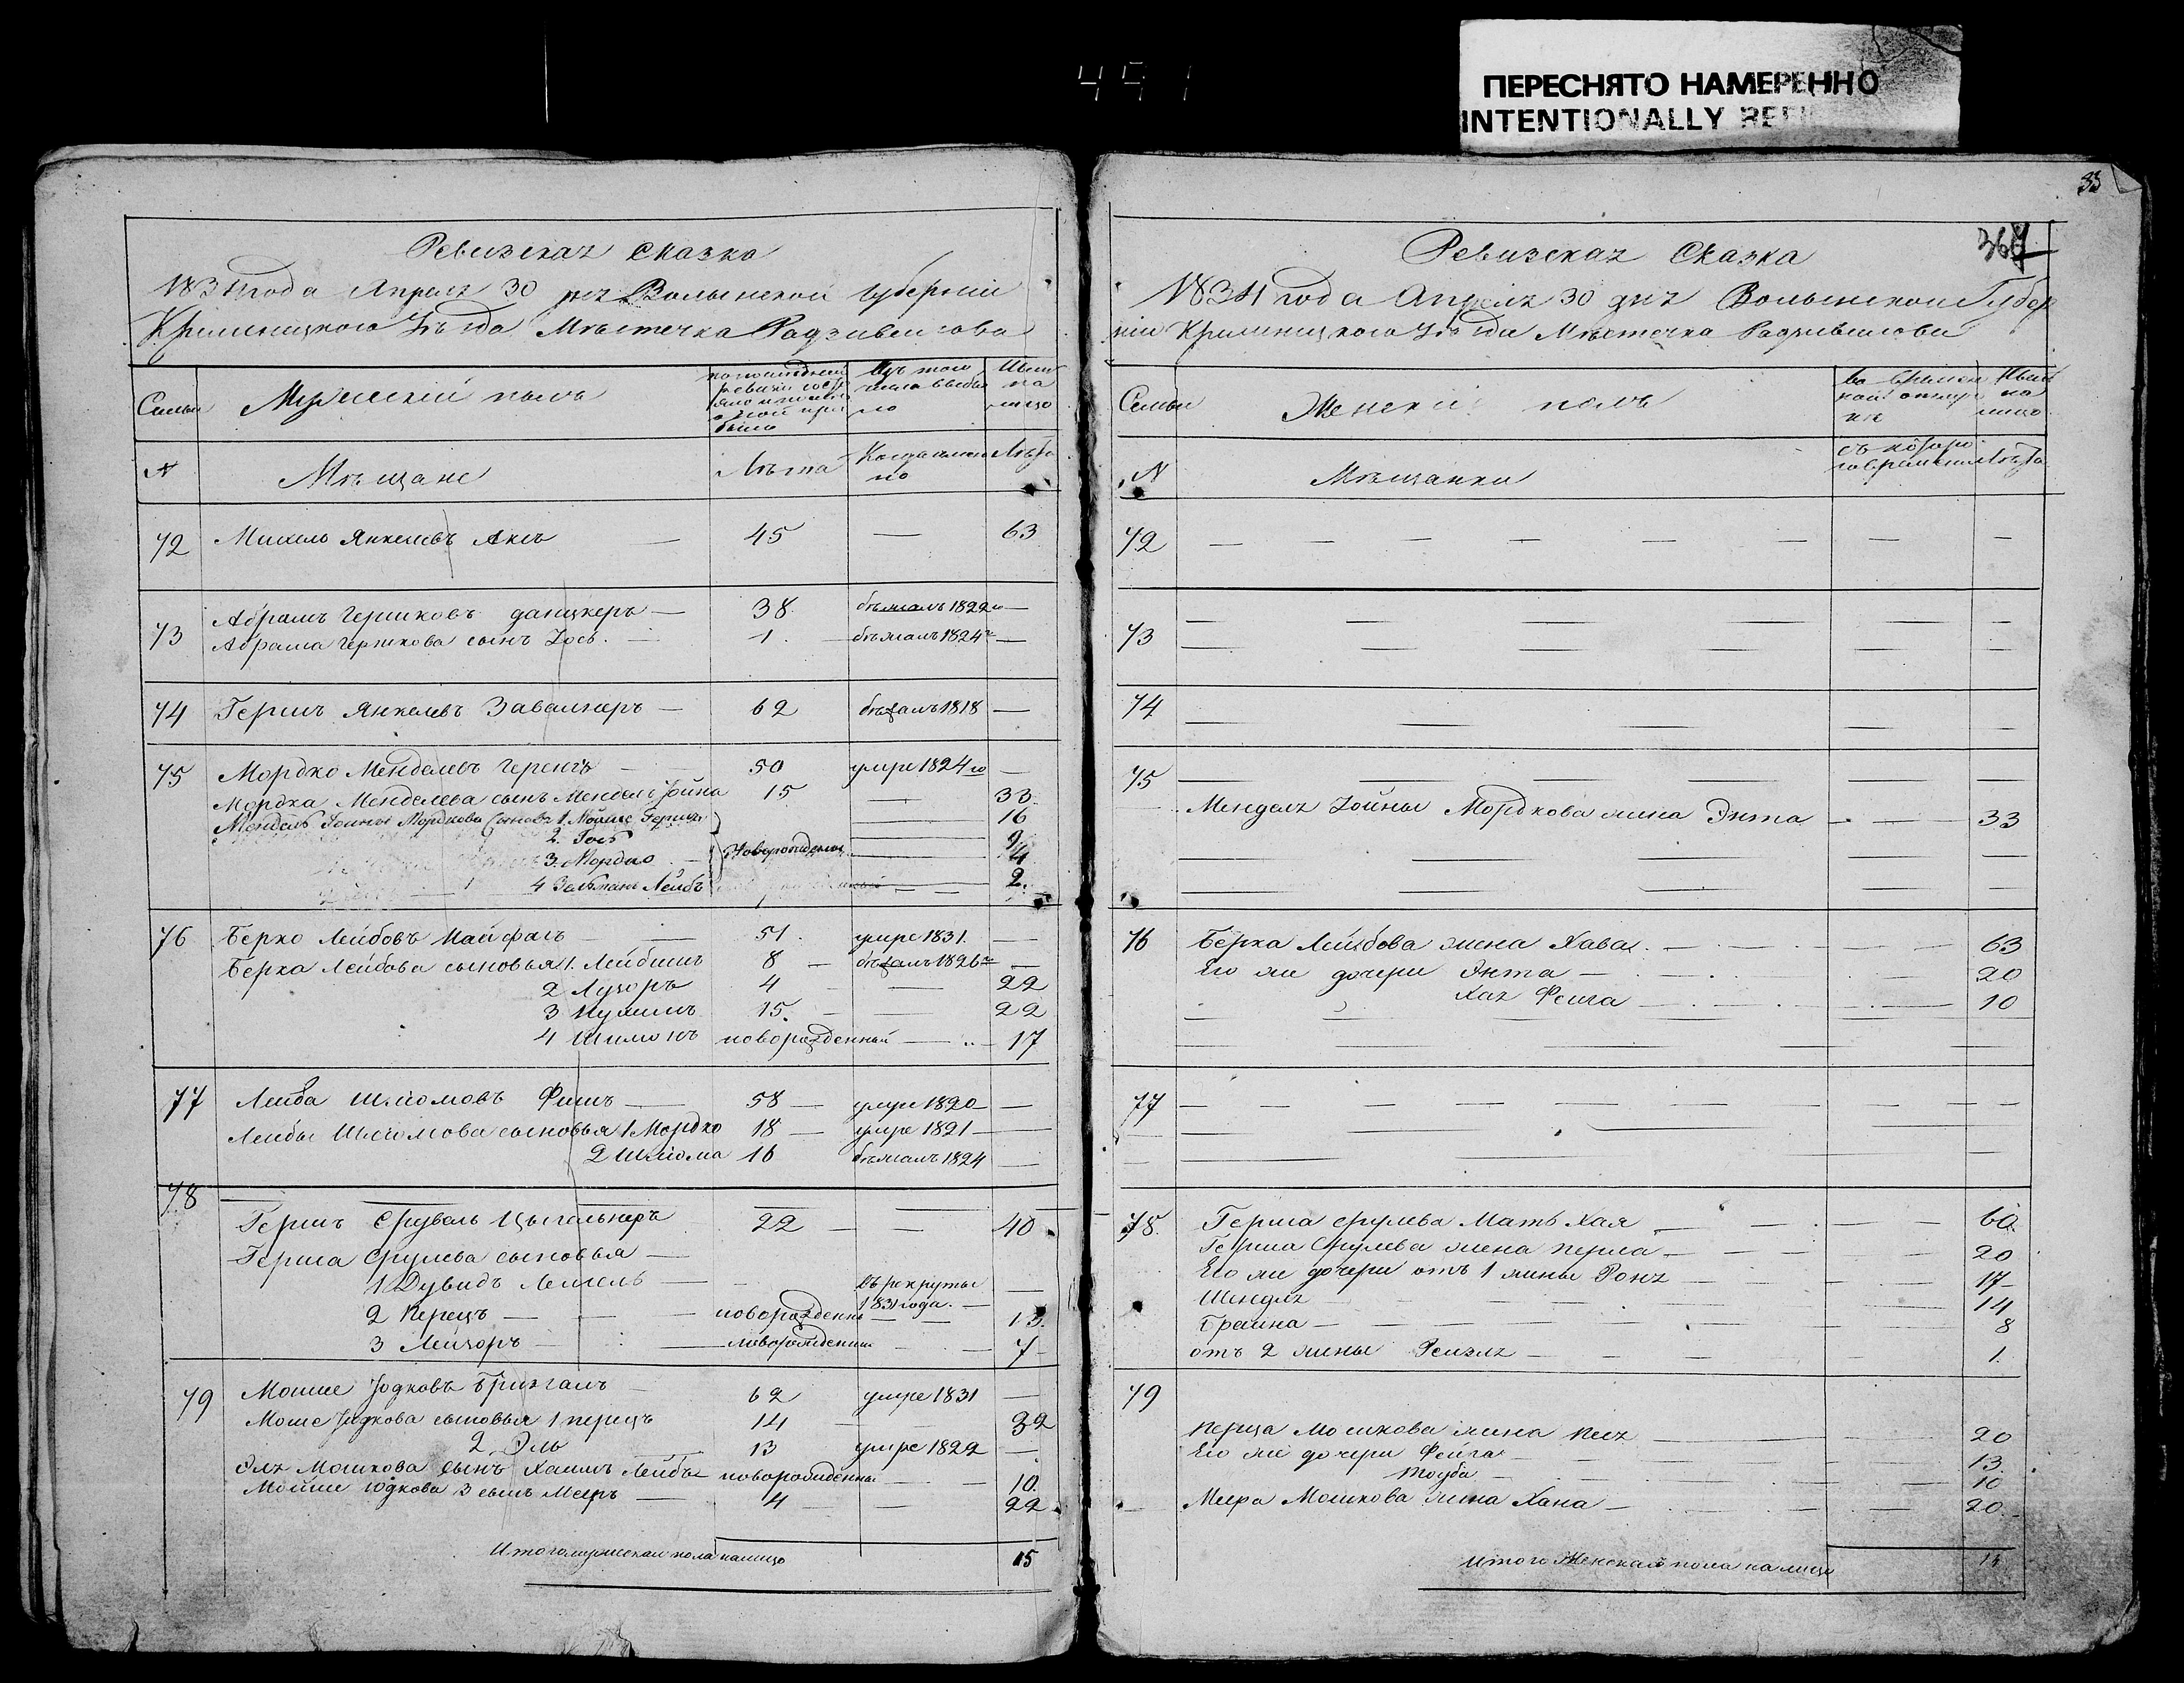 491
ПЕРЕСНЯТО НАМЕРЕННО
INTENTIONALLY
33
Ревизская Сказка
1834 года Апреля 30 дня Волынской Губернии
Кременецкого Уѣзда Мѣстечка Радзивилова
Семьи
Мужескій полъ
Изъ того числа выбыло
Ныне на лицо
N
Мѣщане
Лѣта
Когда именно
Лѣта
72 Михель Янкелевъ — 45 — 63
73 Абрамъ Гершковъ данцкеръ — 38 бѣжалъ 1822 —
Абрама Гершкова сынъ Іось. — 1. — бѣжалъ 1824 —
74 Гершъ Янкелевъ — 62 бѣжалъ 1818 —
75 Мордко Менделевъ — 50 умре 1824 —
Мордка Менделева сынъ Мендель Іойна 15 — 33
Мендель Іойны Мордкова сыновья 1. Мошко Гершъ — 16
2. Іось — 9
3. Мордко — новорожденные — 4
4 Зельманъ Лейбъ — 2
76 Берко Лейбовъ — 51. умре 1831. —
Берка Лейбова сыновья 1. Лейбишъ 8 — бѣжалъ 1826 —
2 Лузоръ 4 — 22
3 15. — 22
4 Шимонъ новорожденный — 17
77 Лейба Шліомовъ Фишъ — 58 — умре 1820 —
Лейбы Шліомова сыновья 1 Мордко 18 — умре 1821 —
2 Шліома 16 бѣжалъ 1824 —
78
Гершъ Срулевъ Цыгельнеръ 22 — 40
Герша Срулева сыновья —
1 Дувидъ Лейзель — въ рекруты 1831 года. —
2 Перецъ — новорожденный — 13.
3 Лейзоръ — новорожденный — 7
79 Мошко Іодковъ — 62 умре 1831 —
Мошко Іодкова сыновья 1 перецъ 14 — 32
2. Эль 13 умре 1822 —
Эля Мошкова сынъ Хаимъ Лейбъ новорожденный — 10.
Мошко Юдкова 3 сынъ Мееръ — 4 — 22
Итого мужескаго пола налицо 15
367
Ревизская Сказка
1834 года Апреля 30 дня Волынской Губер
ніи Кременецкого Уѣзда Мѣстечка Радзивилова
Семьи
Женскій полъ
Ныне на лицо
N
Мѣщанки
Лѣта
72 —
73 —
74 —
75 —
Менделя Іойны Мордкова жена Энта — 33
76 Берка Лейбова жена Хава. — 63
Его же дочери Энта — 20
Хая Фейга — 10
77 —
78. Герша Срулева Мать Хая — 60
Герша Срулева жена перла — 20
Его же дочери отъ 1 жены Роня — 17
Шендля — 14
Браина — 8
отъ 2 жены Рейзля — 1.
79
Перца Мошкова жена — 20
Его же дочери Фейга — 13
Тауба — 10
Меера Мошкова жена Хана — 20
Итого Женскаго пола на лицо